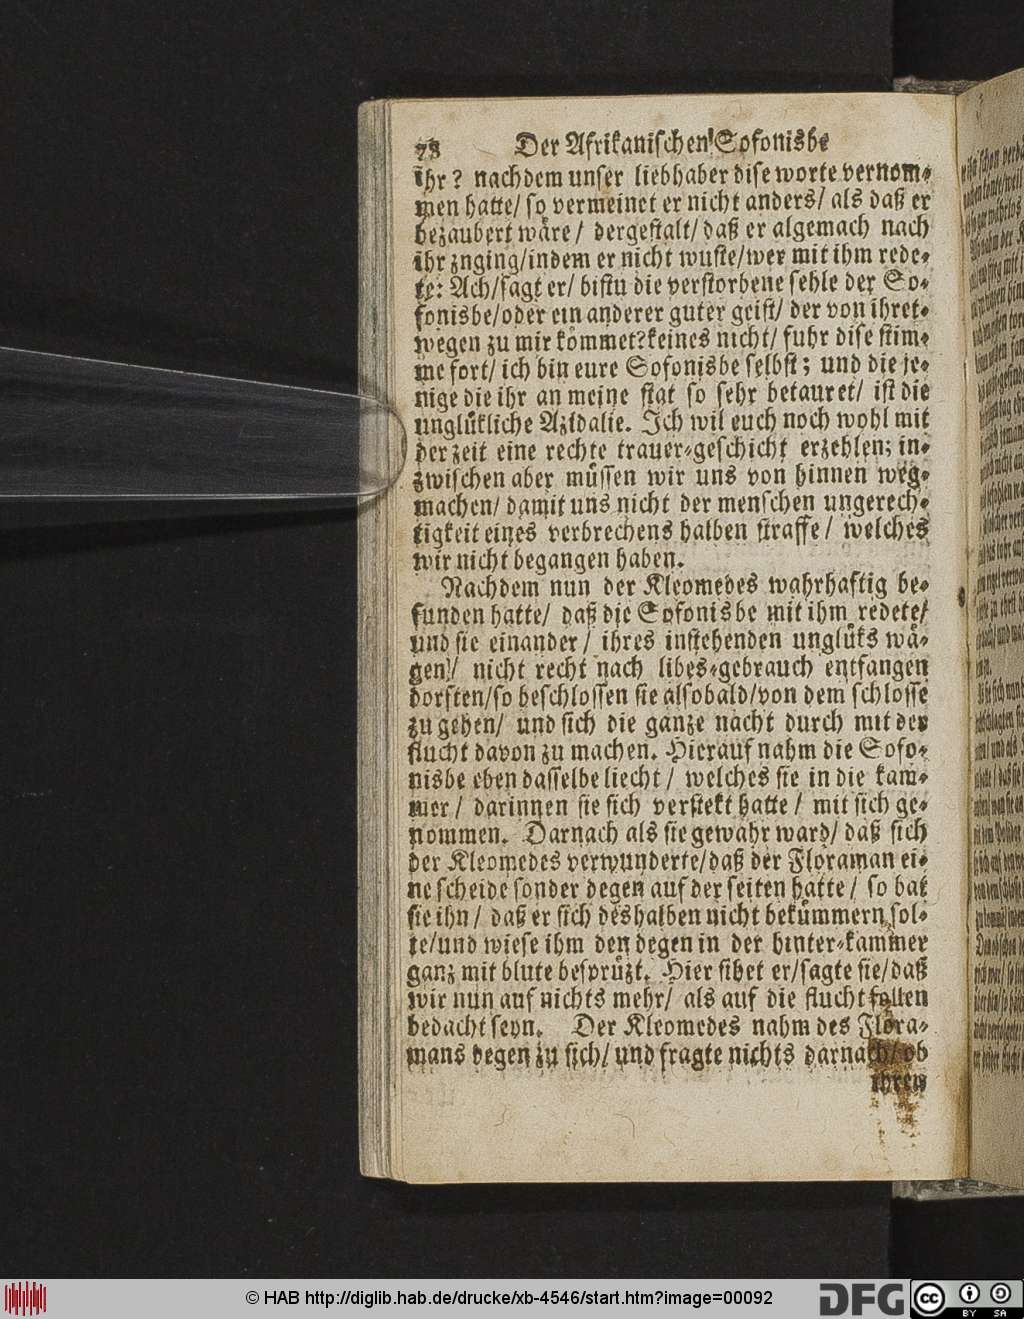 78 Der Afrikanischen Sofonisbe
ihr? nachdem unser liebhaber dise worte vernom-
men hatte/ so vermeinet er nicht anders/ als daß er
bezaubert wäre/ dergestalt/ daß er algemach nach
ihr znging/indem er nicht wuste/wer mit ihm rede-
te: Ach/sagt er/ bistu die verstorbene sehle der So-
fonisbe/oder ein anderer guter geist/ der von ihret-
wegen zu mir kömmet?keines nicht/ fuhr dise stim-
me fort/ ich bin eure Sofonisbe selbst; und die je-
nige die ihr an meine stat so sehr betauret/ ist die
unglükliche Azidalie. Ich wil euch noch wohl mit
der zeit eine rechte trauer-geschicht erzehlen; in-
zwischen aber müssen wir uns von hinnen weg-
machen/ damit uns nicht der menschen ungerech-
tigkeit eines verbrechens halben straffe/ welches
wir nicht begangen haben.
Nachdem nun der Kleomedes wahrhaftig be-
funden hatte/ daß die Sofonisbe mit ihm redete/
und sie einander/ ihres instehenden unglüks wä-
gen/ nicht recht nach libes-gebrauch entfangen
dorften/so beschlossen sie alsobald/von dem schlosse
zu gehen/ und sich die ganze nacht durch mit der
flucht davon zu machen. Hierauf nahm die Sofo-
nisbe eben dasselbe liecht/ welches sie in die kam-
mer/ darinnen sie sich verstekt hatte/ mit sich ge-
nommen. Darnach als sie gewahr ward/ daß sich
der Kleomedes verwunderte/daß der Floraman ei-
ne scheide sonder degen auf der seiten hatte/ so bat
sie ihn/ daß er sich deshalben nicht bekümmern sol-
te/und wiese ihm den degen in der hinter-kammer
ganz mit blute besprüzt. Hier sihet er/sagte sie/daß
wir nun auf nichts mehr/ als auf die flucht sollen
bedacht seyn. Der Kleomedes nahm des Flora-
mans degen zu sich/ und fragte nichts darnach/ ob
ihren
© HAB http://diglib.hab.de/drucke/xb-4546/start.htm?image=00092
DFG
cc BY SA